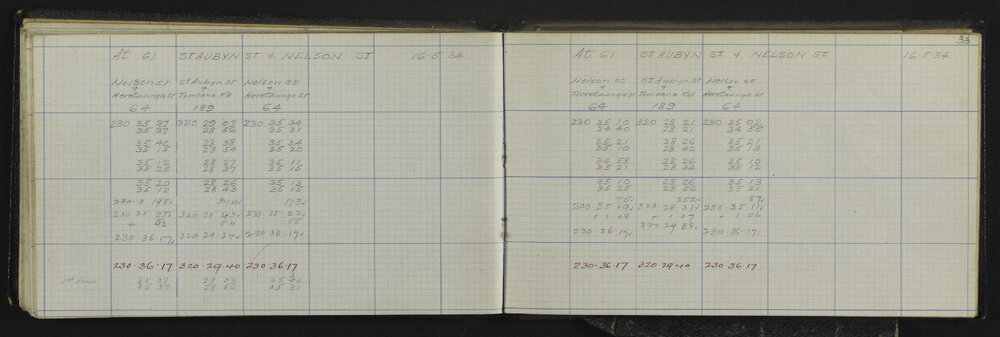 At 61 ST AUBYN ST & NELSON ST 16-5-34
Nelson st St Aubyn st Nelson st
& & &
Heretaunga st Tomoana Rd Heretaunga st
64 189 64
230 35 37 320 29 03 230 35 34
35 37 28 56 35 31
35 40 28 38 35 34
35 15 28 54 35 20
35 12 28 27 35 11
35 25 28 37 35 15
35 20 28 26 35 13
35 12 28 43 35 15
198 344 173
230 35 25 320 28 43 230 35 22
+ 42 54 55
230 36 17 320 29 37 230 36 17
230·36·17 320·29·40 230 36·17
1st
35 37 29 03 35 34
35 37 28 56 35 31
33
At 61 ST AUBYN ST & NELSON ST 16-5-34
Nelson st St Aubyn st Nelson st
& & &
Heretaunga st Tomoana Rd Heretaunga st
64 189 64
230 35 10 320 28 21 230 35 02
34 40 28 21 34 55
35 21 28 26 35 21
35 10 28 42 35 13
34 58 28 26 35 10
35 21 28 34 35 12
35 10 28 26 35 13
35 25 28 56 35 21
75 252 87
230 35 09 320 28 31 230·35·11
+ 1 08 + 1 07 + 1 06
230 36 17 320 29 38 230·36·17
230·36·17 320·29·40 230 36·17